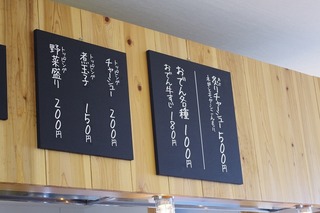 トッピング
チャーシュー 200円
トッピング
煮玉子 150円
トッピング
野菜盛り 200円
炙りチャーシュー 500円
おでん各種 100円
おでん牛すじ 180円